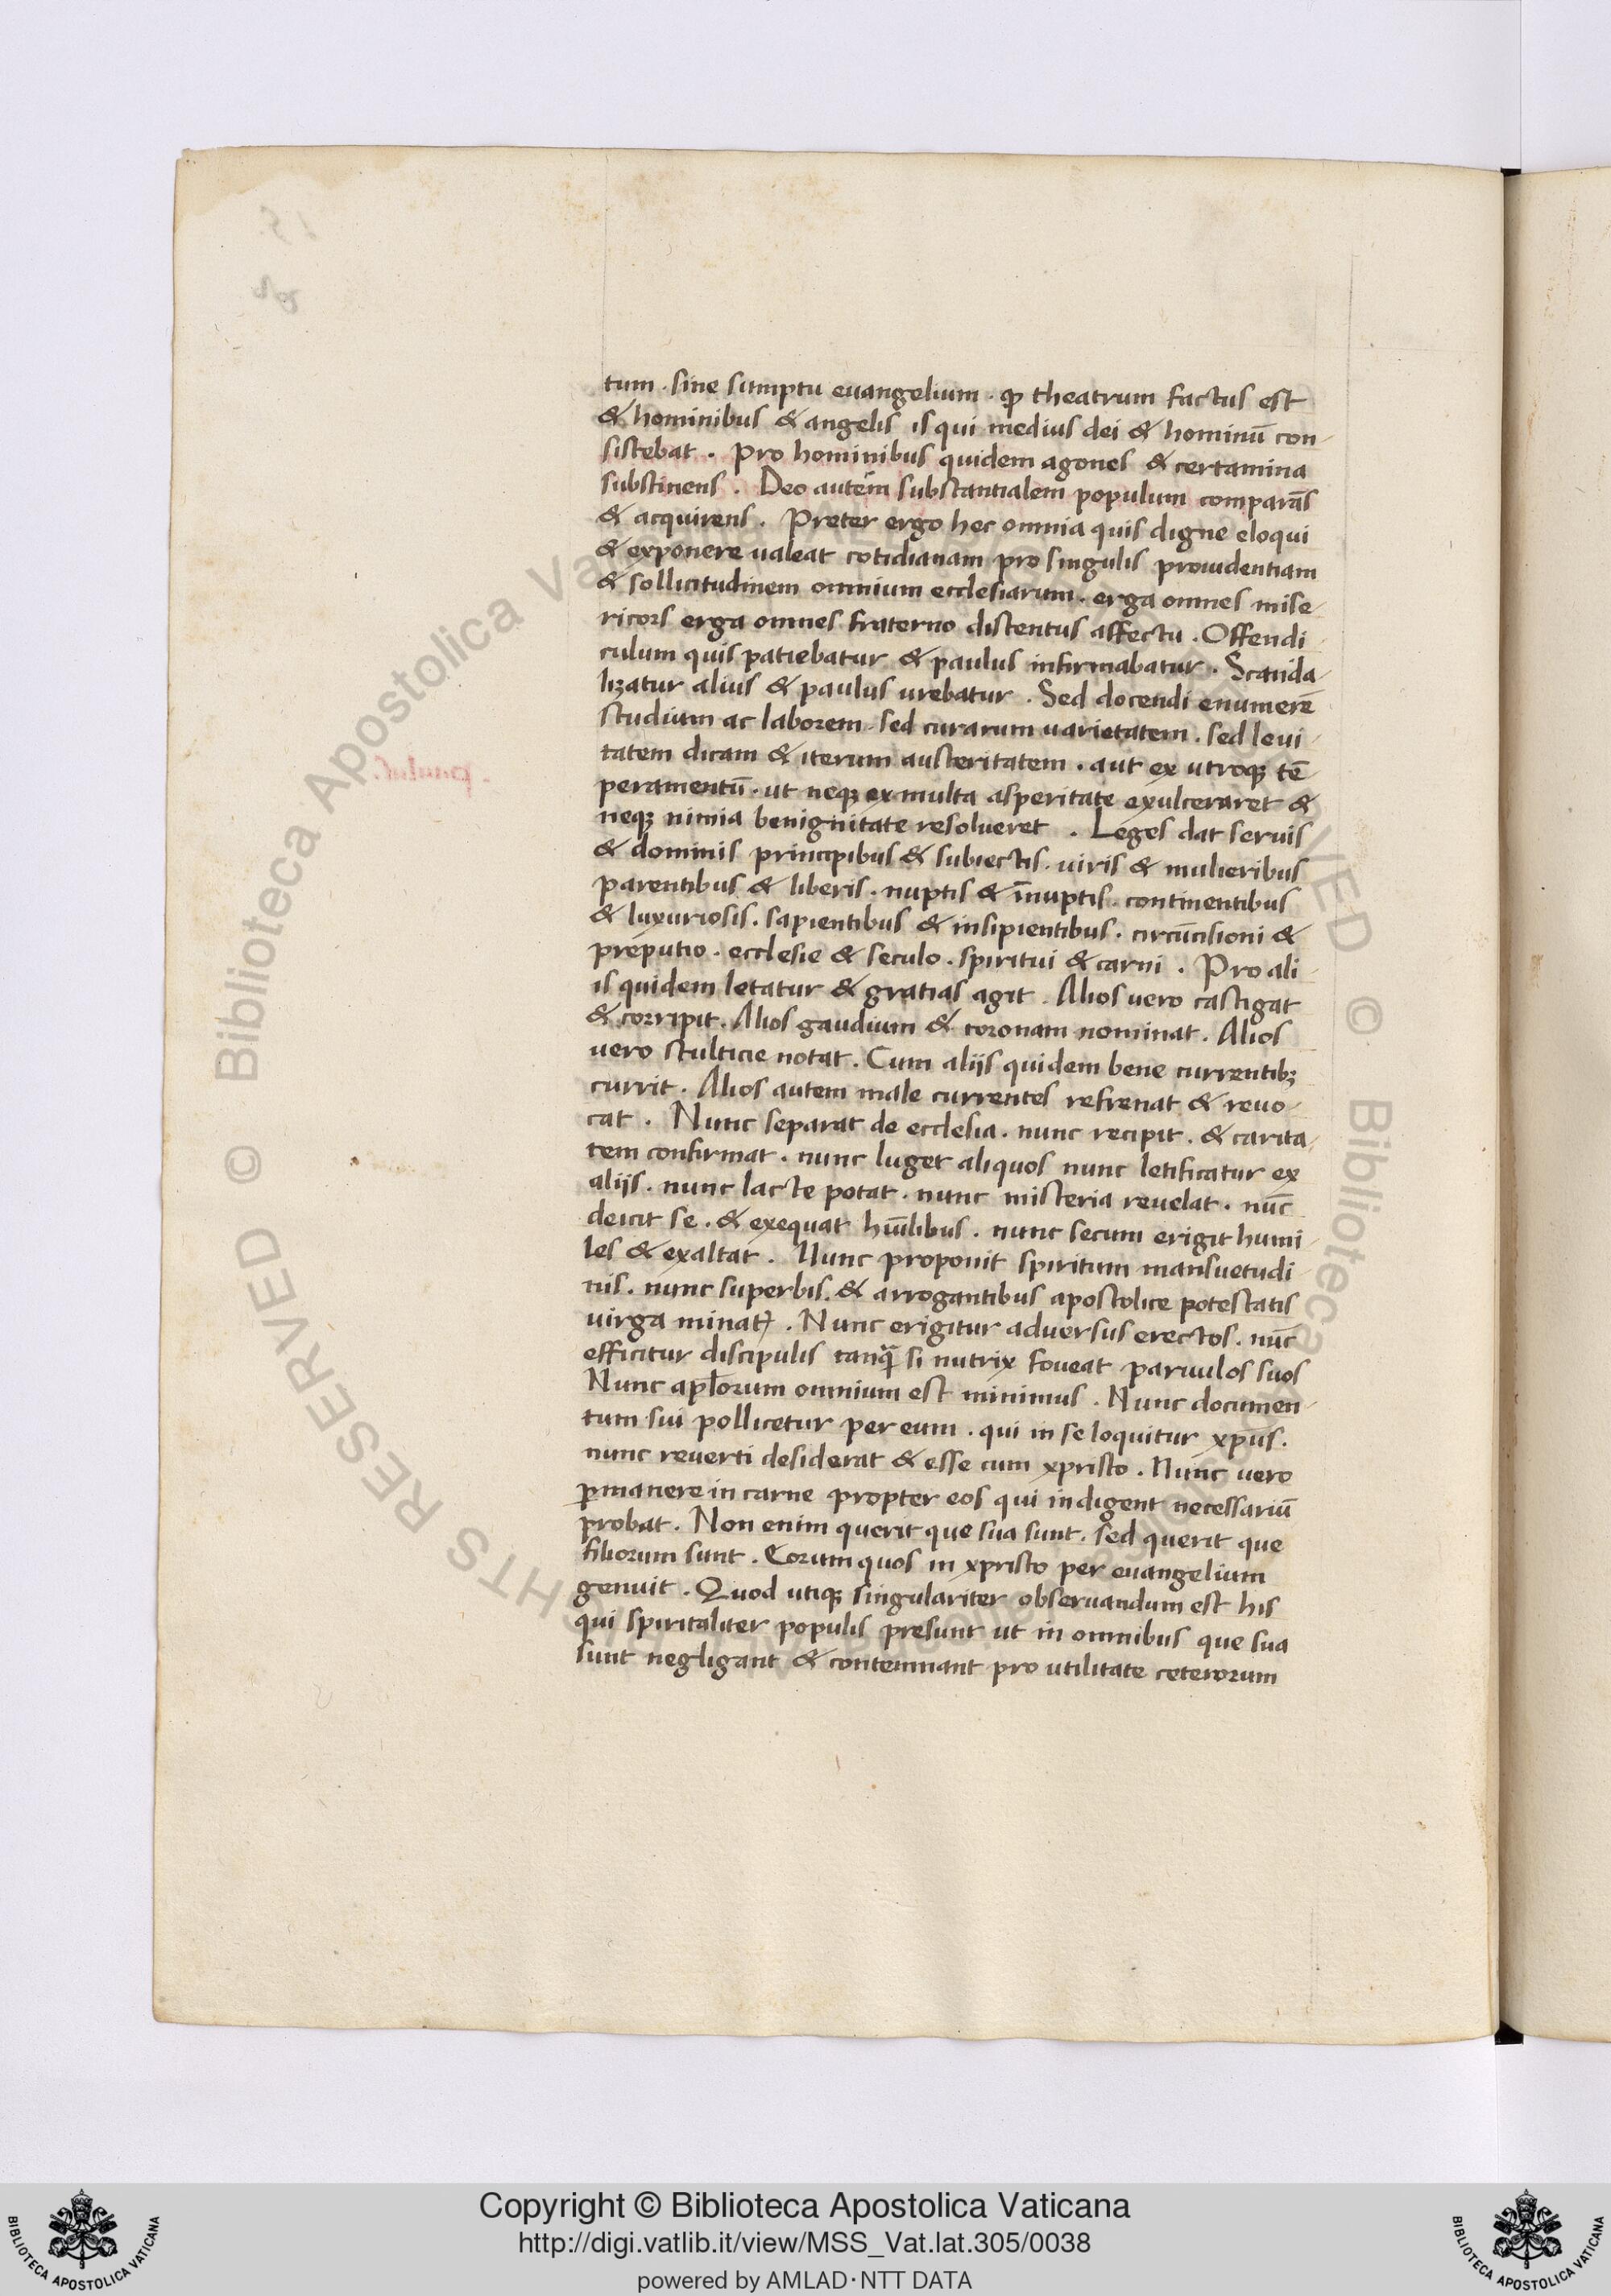 tum . sine sumptu euangelium . ꝙ theatrum factus est
& hominibus & angelis is qui medius dei & hominū con-
sistebat . Pro hominibus quidem agones & certamina
substinens . Deo autem substantialem populum comparās
& acquirens . Preter ergo hec omnia quis digne eloqui
& exponere ualeat cotidianam pro singulis prouidentiam
& sollicitudinem omnium ecclesiarum . erga omnes mise-
ricors erga omnes fraterno distentus affectu . Offendi-
culum quis patiebatur & paulus infirmabatur . Scanda-
lizatur alius & paulus urebatur . Sed docendi enumerē
studium ac laborem . sed curarum uarietatem . sed leui-
tatem dicam & iterum austeritatem . aut ex utroqꝫ tē-
peramentū . ut neqꝫ ex multa asperitate exulceraret &
neqꝫ nimia benignitate resolueret . Leges dat seruis
& dominis principibus & subiectis . uiris & mulieribus
parentibus & liberis . nuptis & īnuptis . continentibus
& luxuriosis . sapientibus & insipientibus . circūcisioni &
preputio . ecclesie & seculo . spiritui & carni . Pro ali-
is quidem letatur & gratias agit . Alios uero castigat
& corripit . Alios gaudium & coronam nominat . Alios
uero stulticie notat . Cum alijs quidem bene currentibꝫ
currit . Alios autem male currentes refrenat & reuo-
cat . Nunc separat de ecclesia . nunc recipit . & carita-
tem confirmat . nunc luget aliquos nunc letificatur ex
alijs . nunc lacte potat . nunc misteria reuelat . nūc
deicit se . & exequat hūilibus . nunc secum erigit humi-
les & exaltat . Nunc proponit spiritum mansuetudi-
nis . nunc superbis . & arrogantibus apostolice potestatis
uirga minat᷑ . Nunc erigitur aduersus erectos . nūc
efficitur discipulis tanꝗ̄ si nutrix foueat paruulos suos
Nunc apl̄orum omnium est minimus . Nunc documen-
tum sui pollicetur per eum . qui in se loquitur xp̄us .
nunc reuerti desiderat & esse cum xpristo . Nunc uero
ꝑmanere in carne propter eos qui indigent necessariū
probat . Non enim querit que sua sunt . sed querit que
filiorum sunt . Eorum quos in xpristo per euangelium
genuit . Quod utiqꝫ singulariter obseruandum est his
qui spiritaliter populis presunt ut in omnibus que sua
sunt negligant & contemnant pro utilitate ceterorum
© Biblioteca Apostolica Vaticana
Copyright © Biblioteca Apostolica Vaticana
http://digi.vatlib.it/view/MSS_Vat.lat.305/0038
powered by AMLAD·NTT DATA
BIBLIOTECA APOSTOLICA VATICANA
BIBLIOTECA APOSTOLICA VATICANA